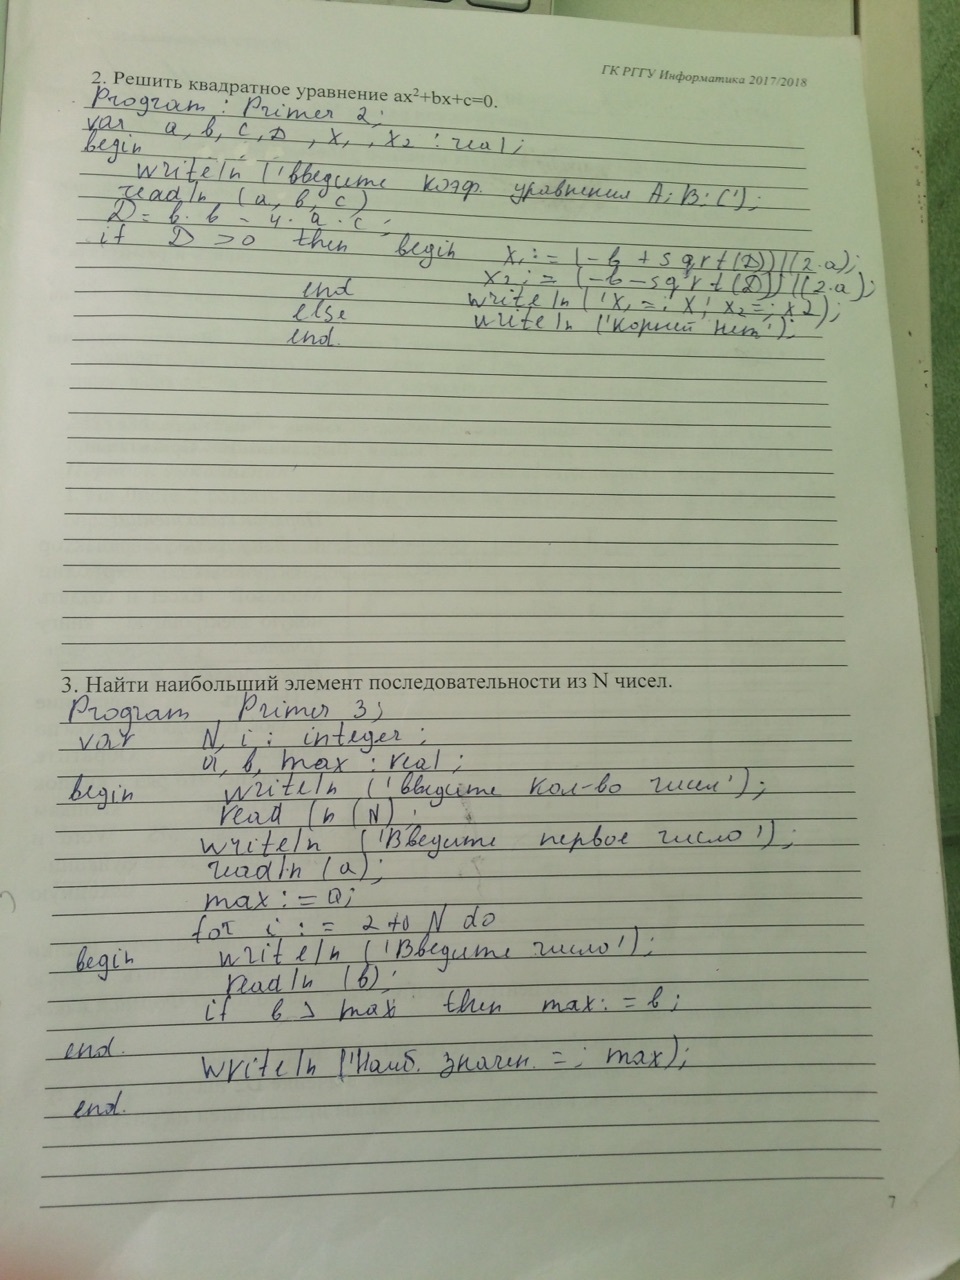 ГК РГГУ Информатика 2017/2018
2. Решить квадратное уравнение ax²+bx+c=0.
Program : Primer 2;
var a, b, c, D, x₁, x₂ : real;
begin
writeln ('введите коэф. уравнения A; B; C');
readln (a, b, c)
D = b · b - 4 · a · c ;
if D > 0 then begin x₁ := (-b + sqrt(D))/(2·a);
x2 := (-b - sqrt(D))/(2·a);
end writeln ('x₁ =; x' x₂ =; x2);
else writeln ('Корней нет');
end.
3. Найти наибольший элемент последовательности из N чисел.
Program Primer 3;
var N, i : integer;
a, b, max : real;
begin writeln ('введите кол-во чисел');
readln (N) ;
writeln ('Введите первое число');
readln (a);
max := a;
for i := 2 to N do
begin writeln ('Введите число');
readln (b);
if b > max then max := b;
end.
writeln ('Наиб. значен. =; max);
end.
7